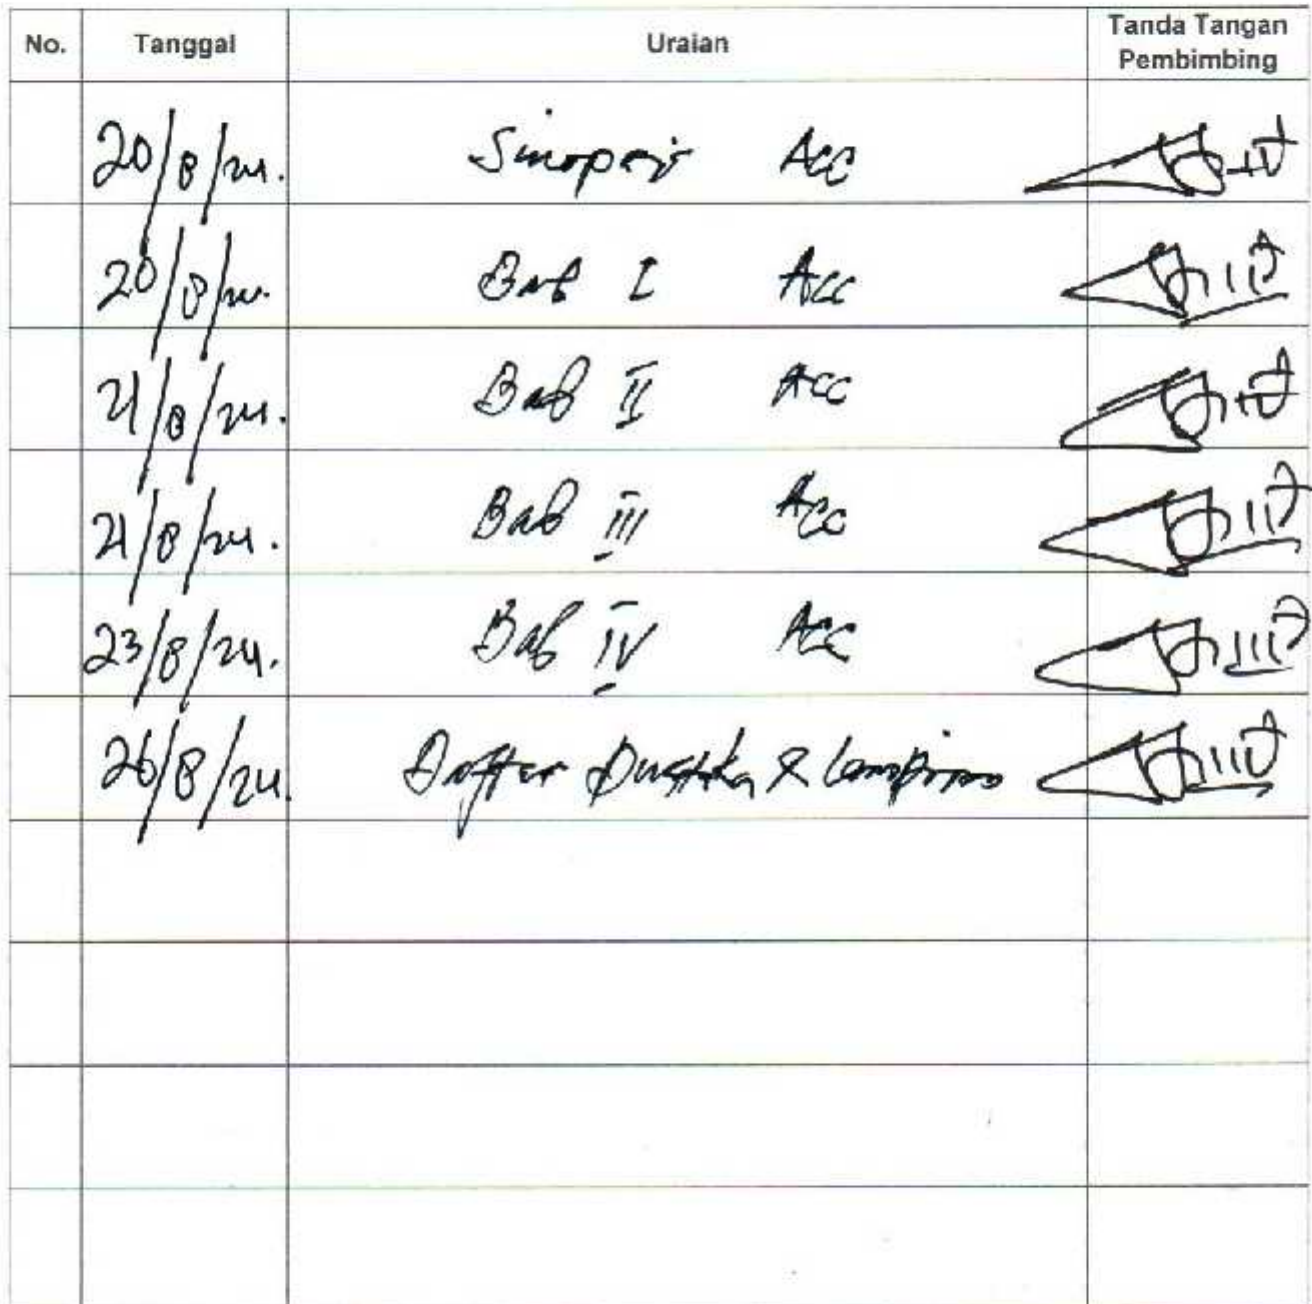 No. Tanggal Uraian Tanda Tangan Pembimbing
20/8/24. Sinopsis Acc
20/8/24. Bab I Acc
21/8/24. Bab II Acc
21/8/24. Bab III Acc
23/8/24. Bab IV Acc
26/8/24. Daftar Pustaka & Lampiran